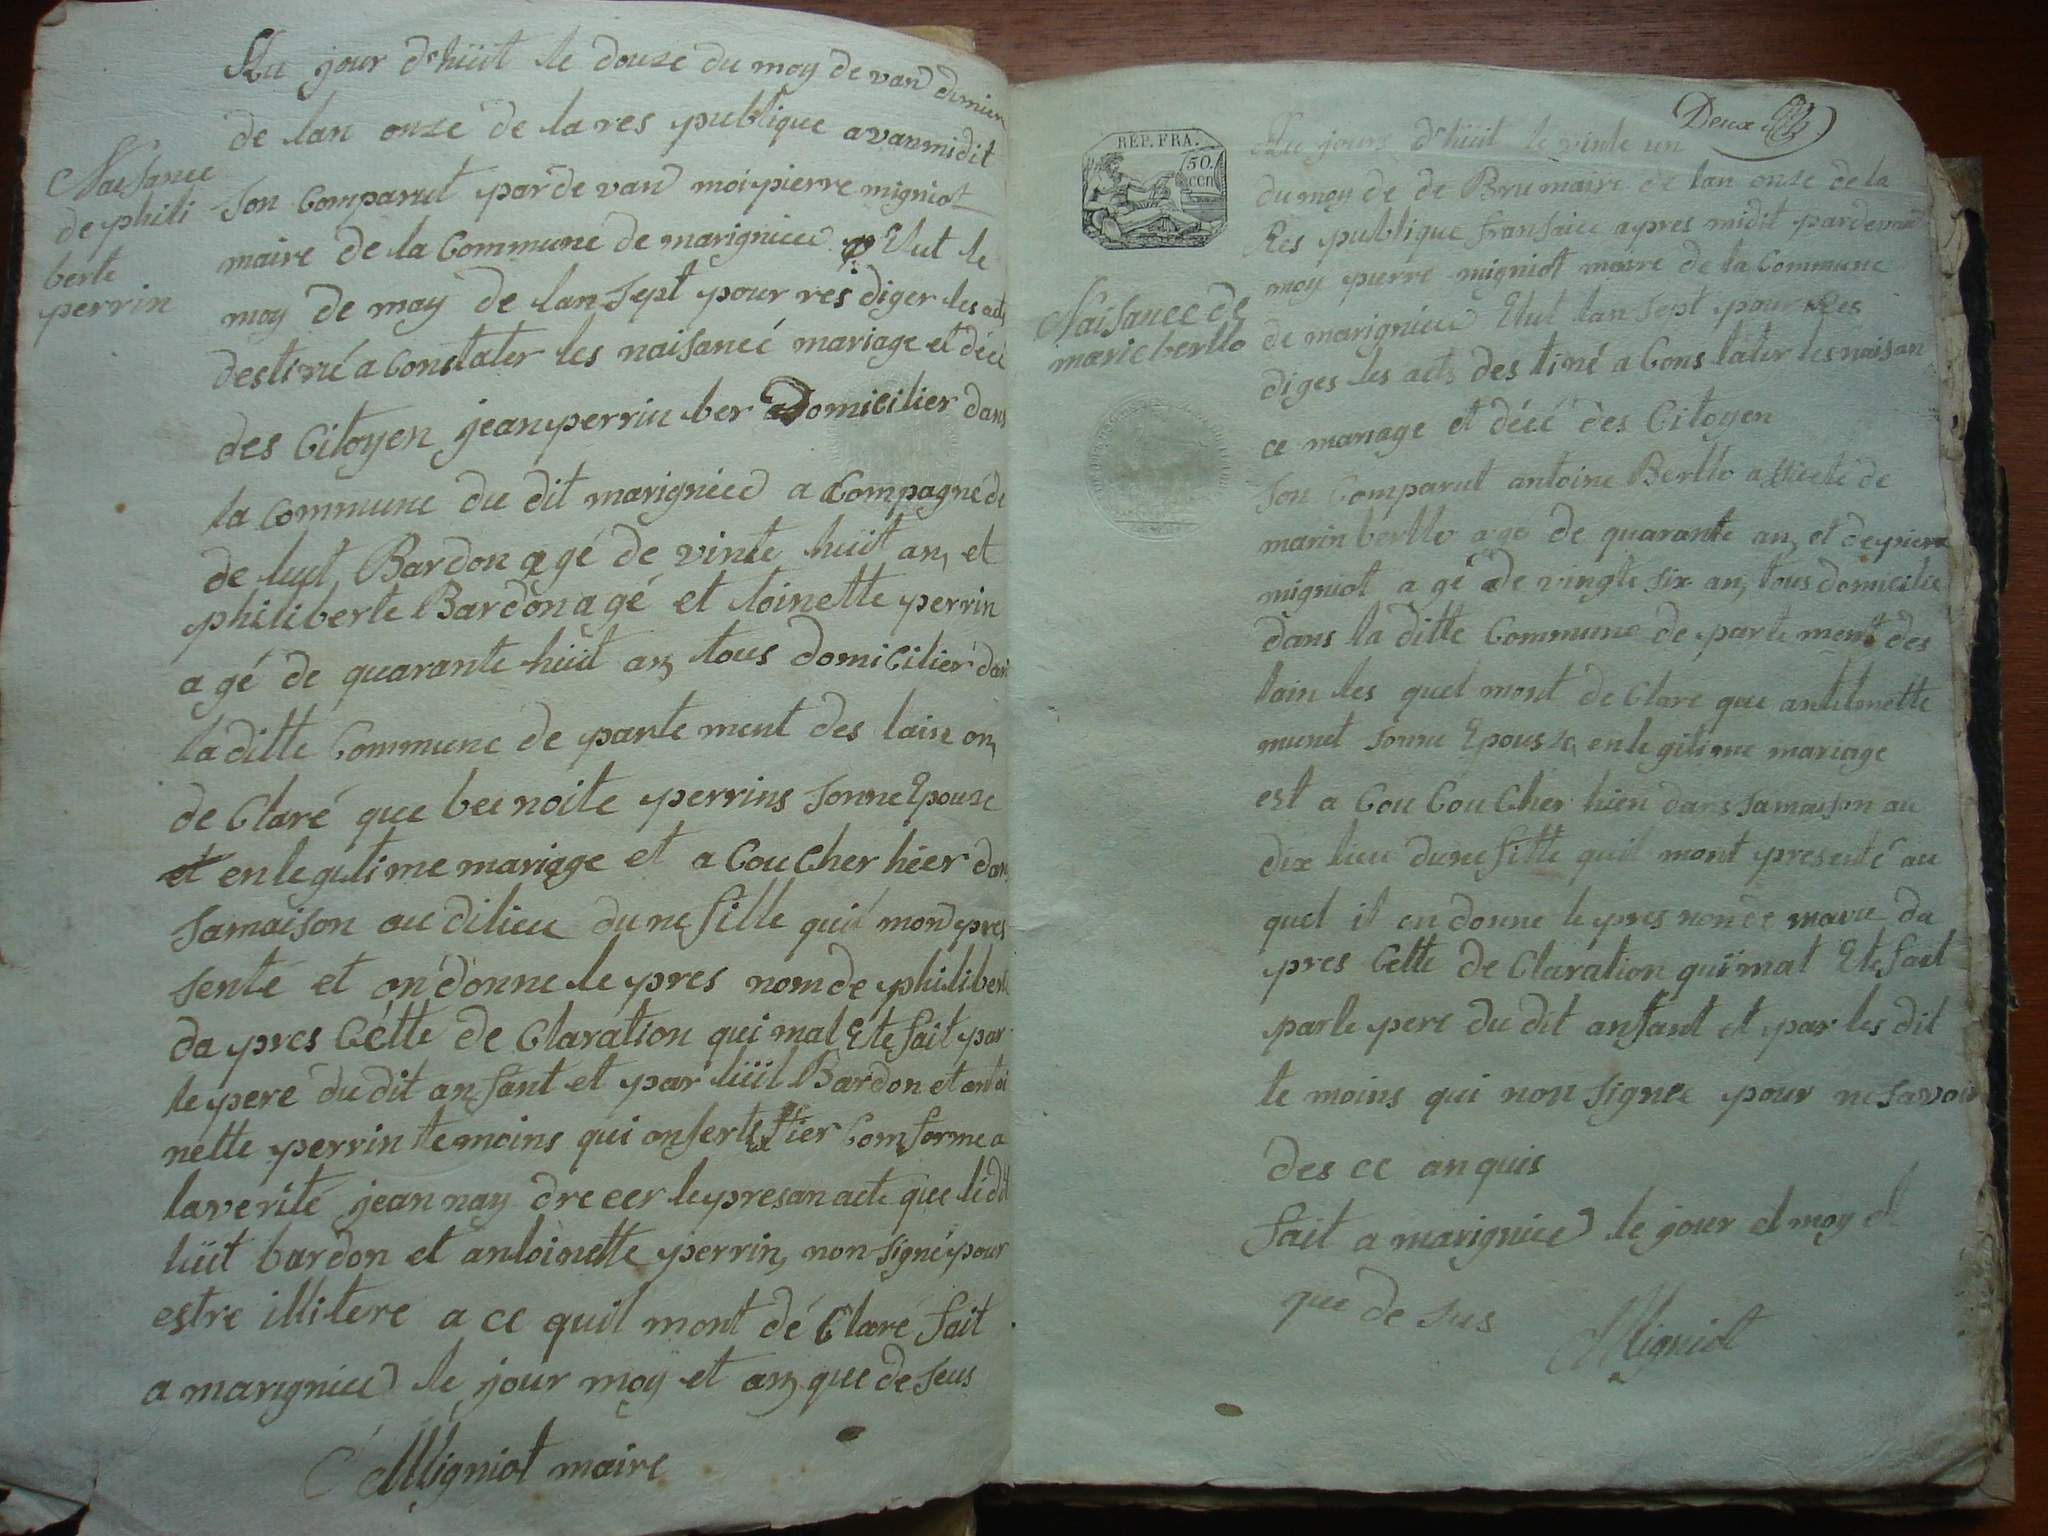 Au jour dhüit le douze du moy de vandemier
de lan onze de la res publique avanmidit
son comparut parde van moi pierre migniot
maire de la Commune de marignieu Elut le
moy de may de lan sept pour res diger les act
destiné a Constater les naisancé mariage et décé
des Citoyen jean perrin ber Domicilier dans
la Commune du dit marignieu a Compagné de
de luit Bardon agé de vinte hüit an et
philiberte Bardon agé et toinette perrin
agé de quarante hüit an tous domicilier dan
la ditte Commune de parte ment des lain on
de Claré que benoite perrins sonne Epouze
et en legitime mariage et a Coucher hier dan
sa maison au dilieu dune fille qui mon pres
senté et on donne le pres nom de philibert
da pres Cette de Claration qui mat Ete fait par
le pere du dit anfant et par lüit Bardon et antoi
nette perrin temoins qui on sertifier Comforme a
la verité jean nay dre cer le presan acte que le dit
lüit bardon et antoinette perrin, non signé pour
estre illitere a ce quil mont dé Claré fait
a marignieu le jour moy et an que de sus
Migniot maire
Naisance
de phili
berte
perrin
Deux
REP. FRA.
50
cen
Au jours dhüit le vinte un
du moy de de Brumaire de lan onze de la
Res publique fransaice apres midit pardevan
moy pierre migniot maire de la Commune
de marignieu Elut lan sept pour Res
diges les act des tiné a Cons tater les naisan
ce mariage et décé des Citoyen
son Comparut antoine Berllo a siste de
marin berllo agé de quarante an et de pierre
migniot a gé de vingte six an tous domicilie
dans la ditte Commune de parte ment des
lain les quel mont de Claré que antelmette
munet sonne Epousze en legitime mariage
est a Cou Cou Cher hier dans sa maison au
dix lieu dune fille quil mont presenté au
quel il en donne le pres nonde marie da
pres Cette de Claration qui mat Ete fait
par le pere du dit anfant et par les dit
te moins qui non signee pour ne savoir
des ce an quis
fait a marignieu le jour et moy et
que de sus
Migniot
Naisance de
marie berllo